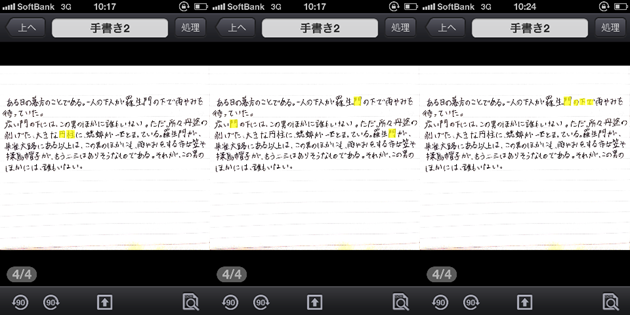 SoftBank 3G 10:17
上へ 手書き2 処理
ある日の暮方のことである。一人の下人が羅生門の下で雨やみを
待っていた。
広い門の下には、この男のほかに誰もいない。ただ、所々丹塗の
剥げた、大きな円柱に、蟋蟀が一匹とまっている。羅生門が、
朱雀大路にある以上は、この男のほかにも、雨やみをする市女笠や
揉烏帽子が、もう二三人はありそうなものである。それが、この男の
ほかには、誰もいない。
4/4
90 90
SoftBank 3G 10:17
上へ 手書き2 処理
ある日の暮方のことである。一人の下人が羅生門の下で雨やみを
待っていた。
広い門の下には、この男のほかに誰もいない。ただ、所々丹塗の
剥げた、大きな円柱に、蟋蟀が一匹とまっている。羅生門が、
朱雀大路にある以上は、この男のほかにも、雨やみをする市女笠や
揉烏帽子が、もう二三人はありそうなものである。それが、この男の
ほかには、誰もいない。
4/4
90 90
SoftBank 3G 10:24
上へ 手書き2 処理
ある日の暮方のことである。一人の下人が羅生門の下で雨やみを
待っていた。
広い門の下には、この男のほかに誰もいない。ただ、所々丹塗の
剥げた、大きな円柱に、蟋蟀が一匹とまっている。羅生門が、
朱雀大路にある以上は、この男のほかにも、雨やみをする市女笠や
揉烏帽子が、もう二三人はありそうなものである。それが、この男の
ほかには、誰もいない。
4/4
90 90